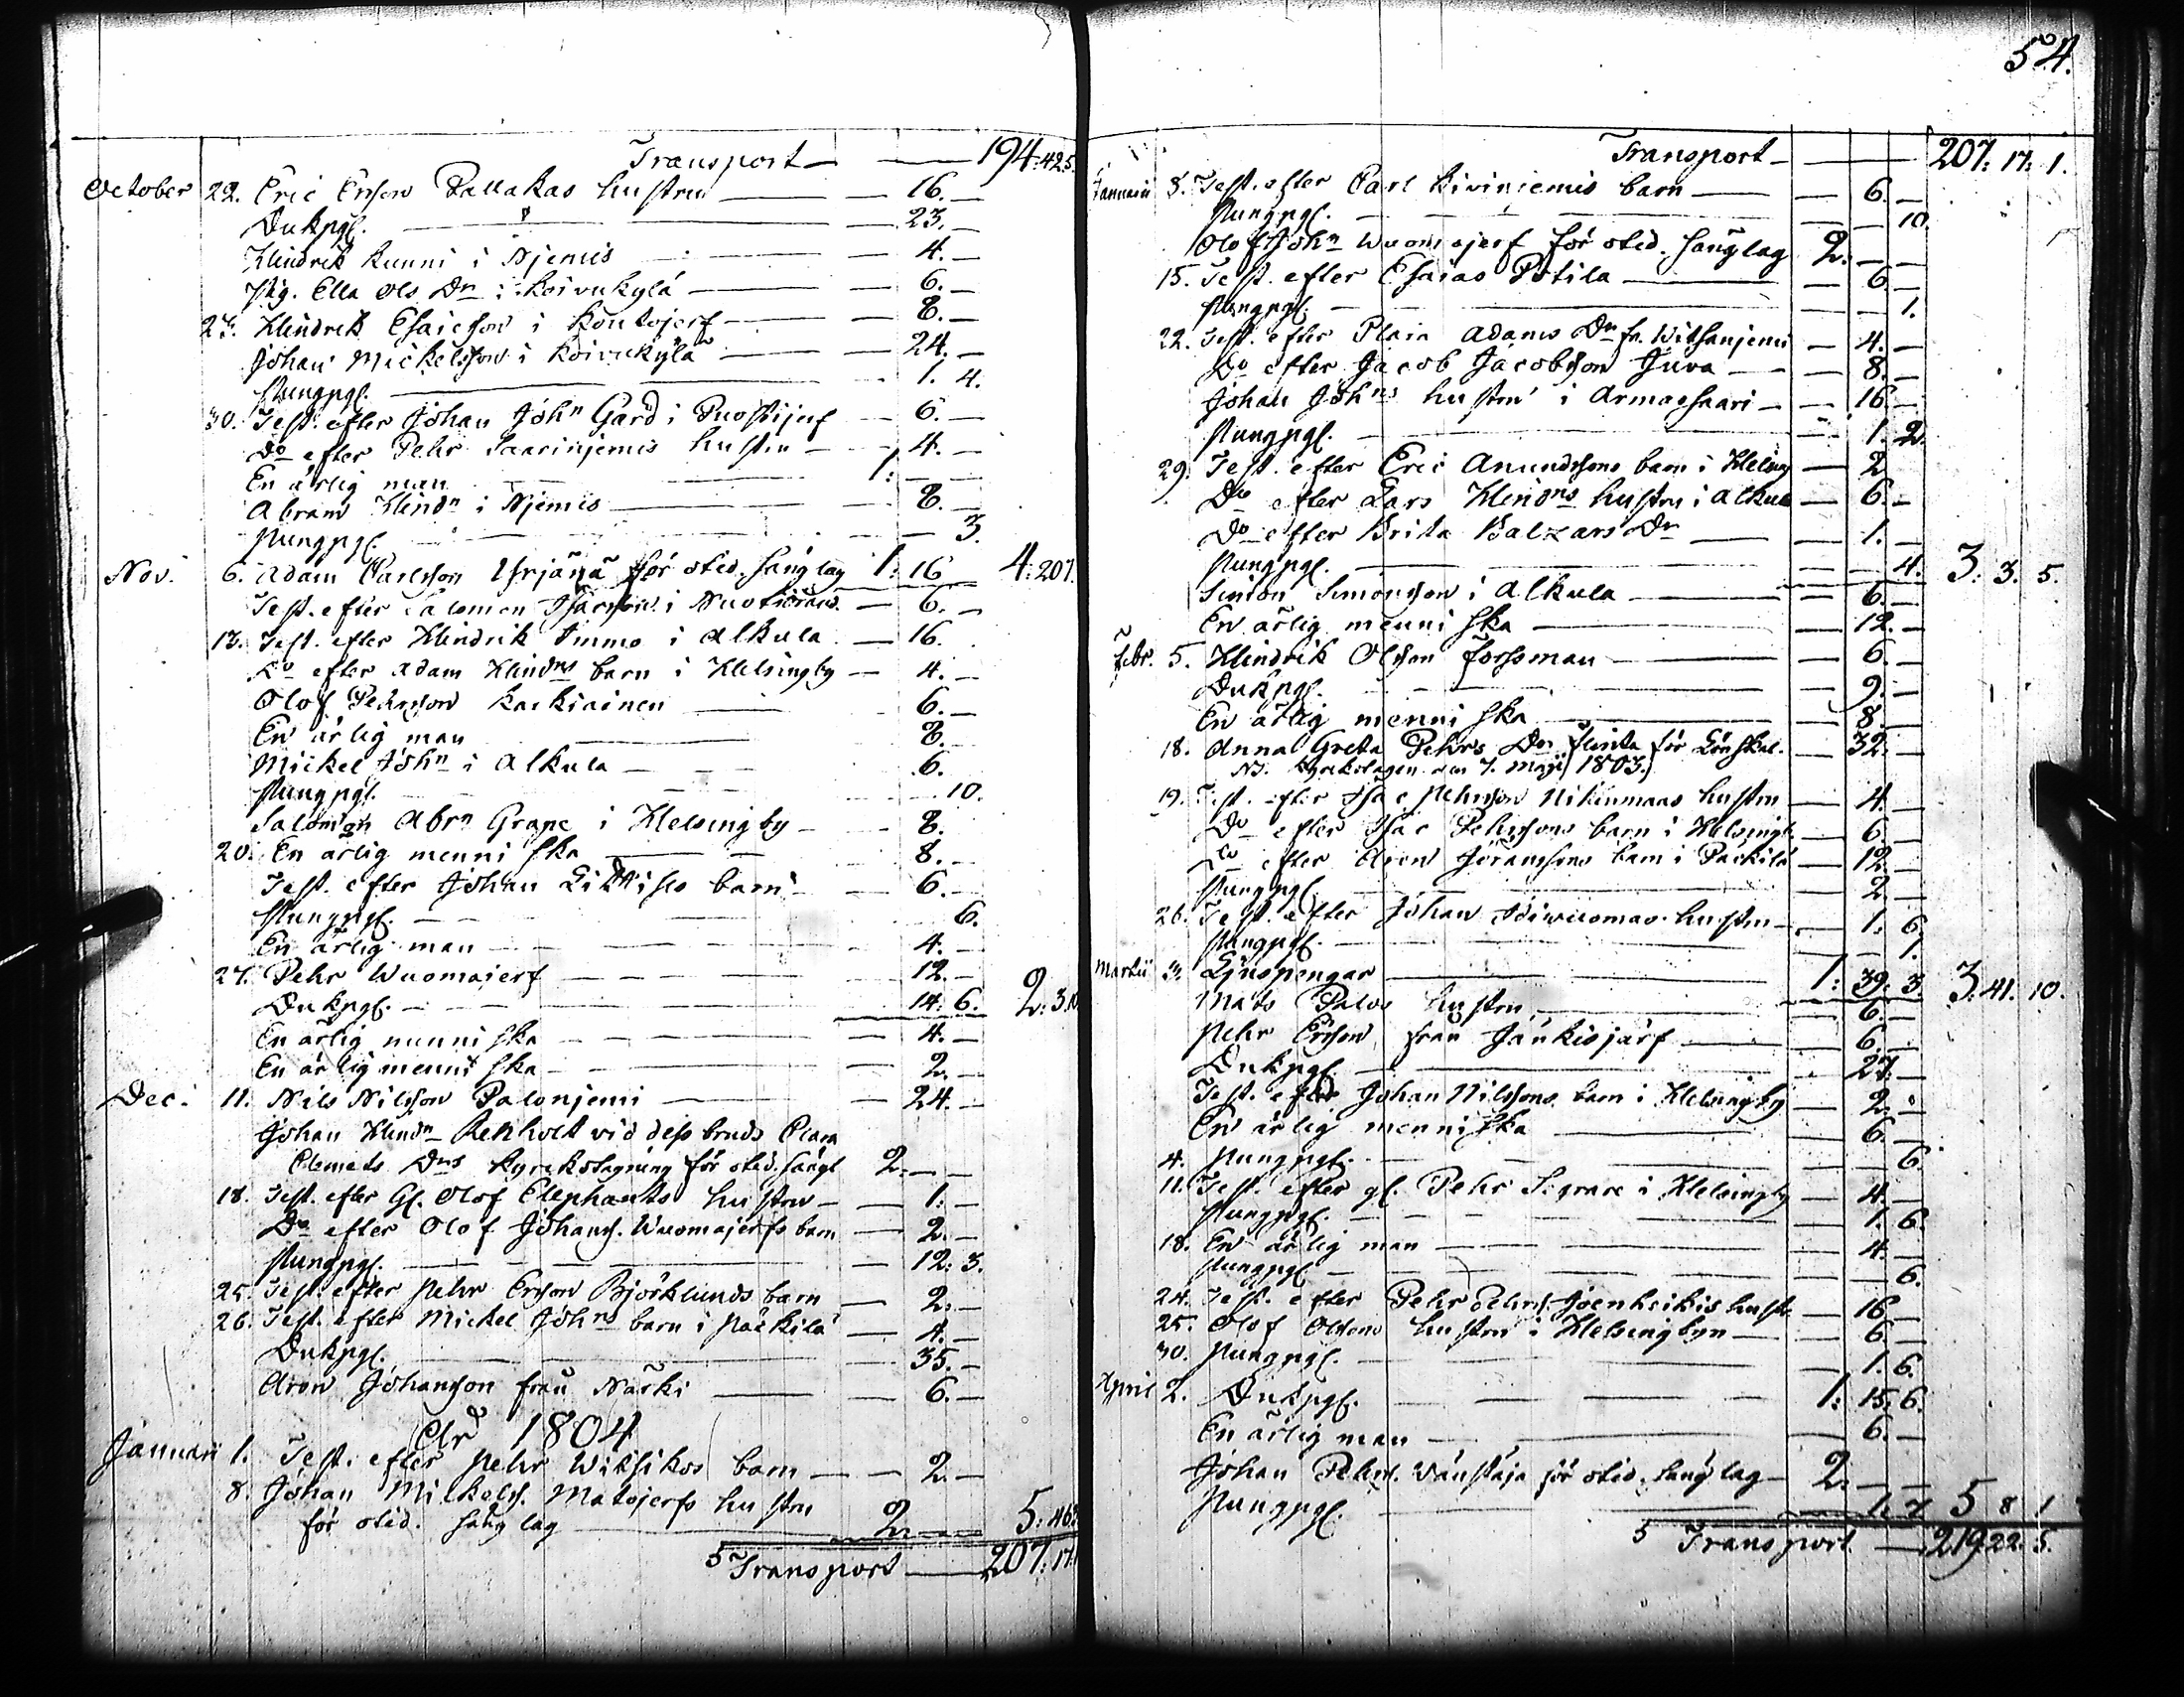 Transport — 194:42.5
October 22. Eric Ersson Pallakas hustru — 16. —
Dukpgr. — 23. —
Hindrik Kunni i Njemis — 4. —
Pig. Ella Ols Dr i Koivukylä — 6. —
23. Hindrik Esaiesson i Kontojerf — 8. —
Johan Mickelsson i Koivukylä — 24. —
Pungpgr. — 1. 4.
30. Test. efter Johan John Gård i Puostijerf — 6. —
Do efter Pehr Saarinjemis hustru — 4. —
En ärlig man — 1: —
Abram Hindn i Njemis — 8. —
Pungpgr. — 3.
Nov. 6. Adam Carlsson Yrjänä för otid. sänglag 1: 16 — 4:207.
Test. efter Salomon — 6. —
13. Test. efter Hindrik Immo i Alkula — 16.
Do efter Adam Hindrs barn i Helsingby — 4. —
Olof Pehrsson Karkiainen — 6. —
En ärlig man — 8. —
Mickel John i Alkula — 6. —
Pungpgr. — 10.
Salomon Abrn Grape i Helsingby — 8.
20. En ärlig menniska — 8. —
Test. efter Johan barn — 6. —
Pungpgr. — 6.
En ärlig man — 4. —
27. Pehr Wuomajerf — 12. —
Dukpgr. — 14. 6. 2:3.10
En ärlig menniska — 4. —
En ärlig menniska — 2. —
Dec. 11. Nils Nilsson Palonjemi — 24. —
Johan Hindn Renholt vid dess bruds Clara
Clemets Drs kyrkotagning för otid. sängl 2. —
18. Test. efter Gl. Olof Elephants hustru — 1: —
Do efter Olof Johans. Wuomajerfs barn — 2. —
Pungpgr. — 12: 3.
25. Test. efter Pehr Ersson Björklunds barn — 2. —
26. Test. efter Mickel Johns barn i Päckilä — 4. —
Dukpgr. — 35. —
Aron Johansson från Närki — 6. —
År 1804
Januari 1. Test. efter Pehr Wiksikos barn — 2. —
8. Johan Mickelss. Matojerfs hustru
för otid. sänglag — 2. — 5:46
5 Transport — 207:17
54.
Transport — 207: 17: 1.
Januarii 8. Test. efter Carl Kivinjemis barn — 6. —
Pungpgr. — 10.
Olof John Wuomajerf för otid. sänglag 2. —
15. Test. efter Esaias Potila — 6. —
Pungpgr. — 1.
22. Test. efter Clara Adams Dr fr. Witsanjemi — 4. —
Do efter Jacob Jacobsson Juva — 8. —
Johan Johns hustru i Armassaari — 16. —
Pungpgr. — 1. 2.
29. Test. efter Eric Anundssons barn i Helsing — 2
Do efter Lars Hindrs hustru i Alkula — 6. —
Do efter Brita Balzars Dr — 1. —
Pungpgr. — 4. 3. 3. 5.
Simon Simonsson i Alkula — 6. —
En ärlig menniska — 12. —
Febr. 5. Hindrik Olsson Forssman — 6. —
Dukpgr. — 9. —
En ärlig menniska — 8. —
18. Anna Greta Pehrs Dr Flinta för Lönskal. — 32. —
N3. kyrkotagen den 7. Maji 1803.
19. Test. efter Isac Pehrsson Nikinmaas hustru — 4. —
Do efter Isac Pehrssons barn i Helsingb. — 6. —
Do efter Aron Göranssons barn i Päckilä — 12. —
Pungpgr. — 2. —
26. Test. efter Johan hustru — 1: 6.
Pungpgr. — 1.
Martii 3. Ljuspengar — 1: 39. 3. 3. 41. 10.
Mats Palos hustru — 6. —
Pehr Ersson från Jänkisjärf — 6. —
Dukpgr. — 27. —
Test. efter Johan Nilssons barn i Helsingby — 2. —
En ärlig menniska — 6. —
4. Pungpgr. — 6.
11. Test. efter gl. Pehr i Helsingby — 4. —
Pungpgr. — 1. 6.
18. En ärlig man — 4. —
Pungpgr. — 6.
24. Test. efter Pehr Pehrs. Joenheikis hustr. — 16. —
25. Olof Olssons hustru i Helsingbyn — 6. —
30. Pungpgr. — 1. 6.
April 2. Dukpgr. — 1: 15. 6.
En ärlig man — 6. —
Johan Pehrs. Wänstäjä för otid. sänglag — 2. —
Pungpgr. — 1. 7. 5 8 1
5 Transport — 219. 22. 5.